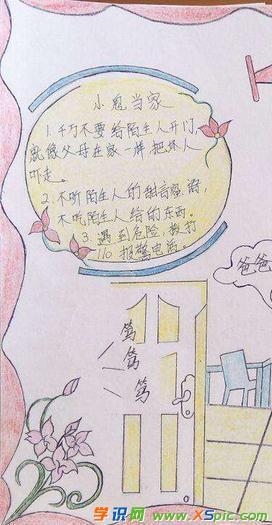 小鬼当家
1.千万不要给陌生人开门,
就像父母在家一样把坏人
吓走。
2.不听陌生人的甜言蜜语,
不吃陌生人给的东西。
3.遇到危险,拨打
110报警电话。
爸爸
笃
笃
笃
学识网 www.XSpic.com